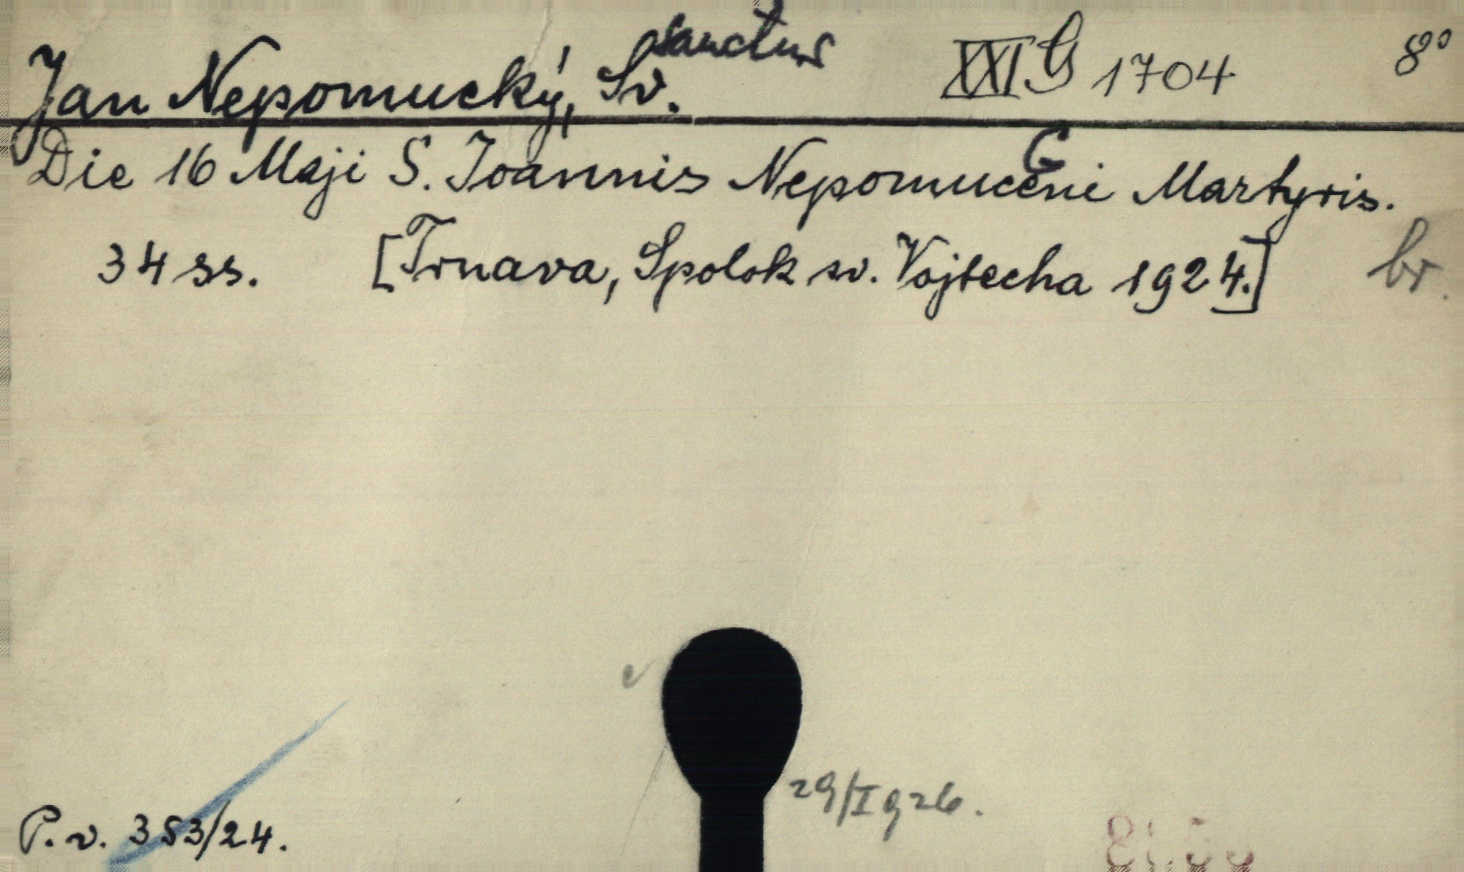 Jan Nepomucký, Sv. sanctus XXI G 1704 8°
Die 16 Maji S. Joannis Nepomuceni Martyris.
34 ss. [Trnava, Spolok sv. Vojtecha 1924.] br.
P. v. 353/24.
29/I 926.